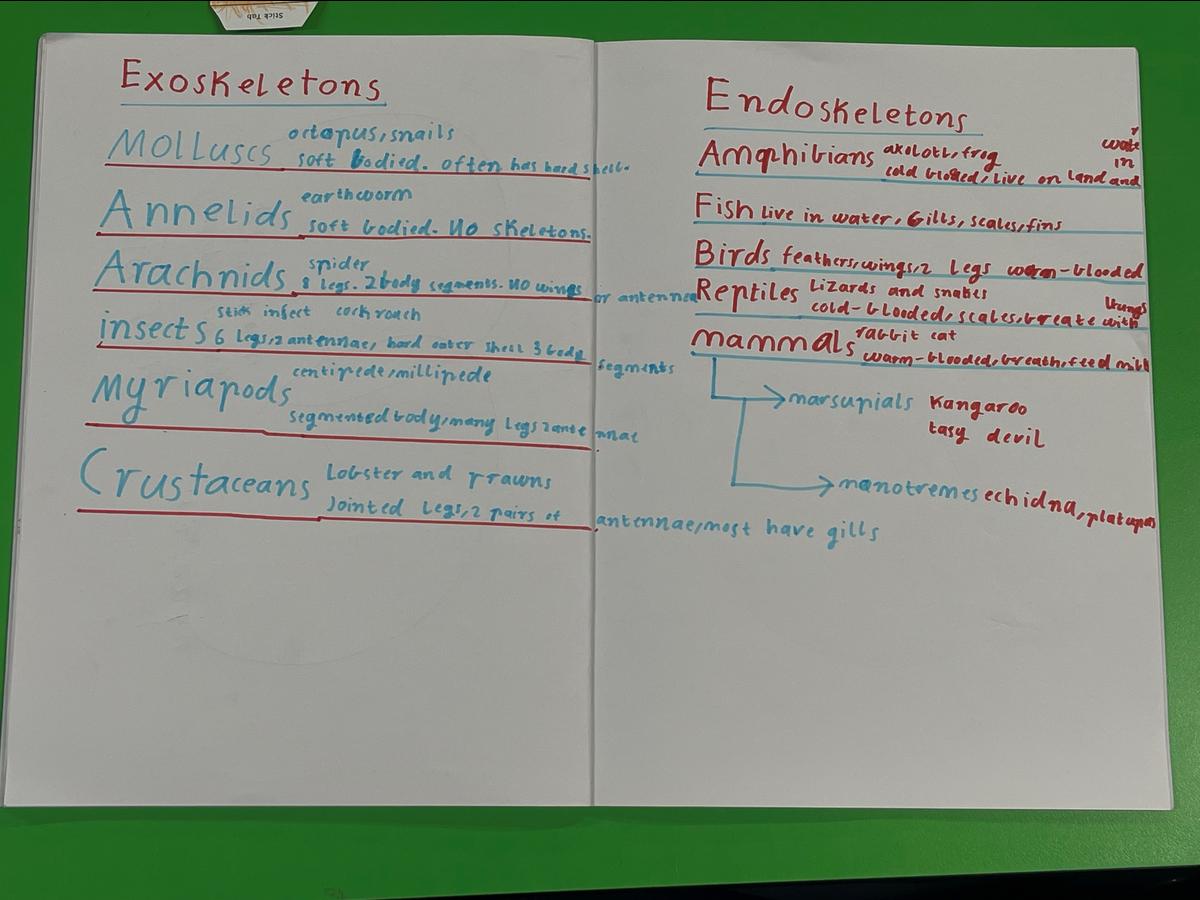 Stick Tab
Exoskeletons
Molluscs octopus, snails
soft bodied. often has hard shell.
Annelids earthworm
soft bodied. No skeletons.
Arachnids spider
8 legs. 2 body segments. No wings or antennea
insects stick insect cockroach
6 legs, 2 antennae, hard outer shell 3 body segments
Myriapods centipede, millipede
segmented body, many legs 2 antennae
Crustaceans Lobster and prawns
Jointed Legs, 2 pairs of antennae, most have gills
Endoskeletons
Amphibians axolotl, frog
cold blooded, live on land and in water
Fish Live in water, Gills, scales, fins
Birds feathers, wings, 2 Legs warm-blooded
Reptiles Lizards and snakes
cold-blooded, scales, breate with lungs
mammals rabbit cat
warm-blooded, breath, feed milk
marsupials Kangaroo
tasy devil
manotremes echidna, platupas